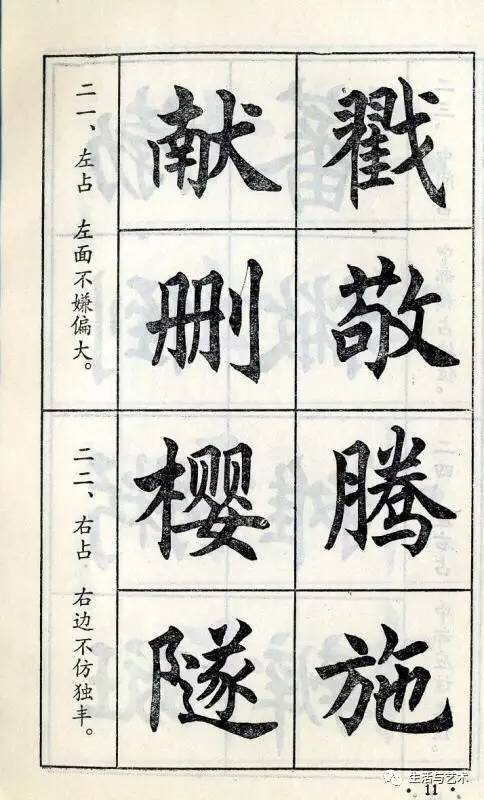 二一、左占 左面不嫌偏大。
献戳
删敬
二二、右占 右边不仿独丰。
樱腾
隧施
生活与艺术
· 11 ·